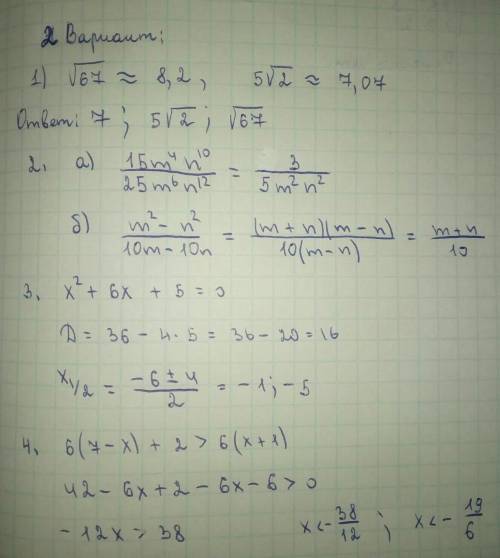 2 Вариант:
1) √67 ≈ 8,2, 5√2 ≈ 7,07
Ответ: 7; 5√2; √67
2. а) 15m⁴n¹⁰/25m⁶n¹² = 3/5m²n²
б) m² - n²/10m - 10n = (m + n)(m - n)/10(m - n) = m + n/10
3. x² + 6x + 5 = 0
D = 36 - 4·5 = 36 - 20 = 16
x₁/₂ = -6 ± 4/2 = -1; -5
4. 6(7 - x) + 2 > 6(x + 1)
42 - 6x + 2 - 6x - 6 > 0
-12x > 38 x < -38/12; x < -19/6